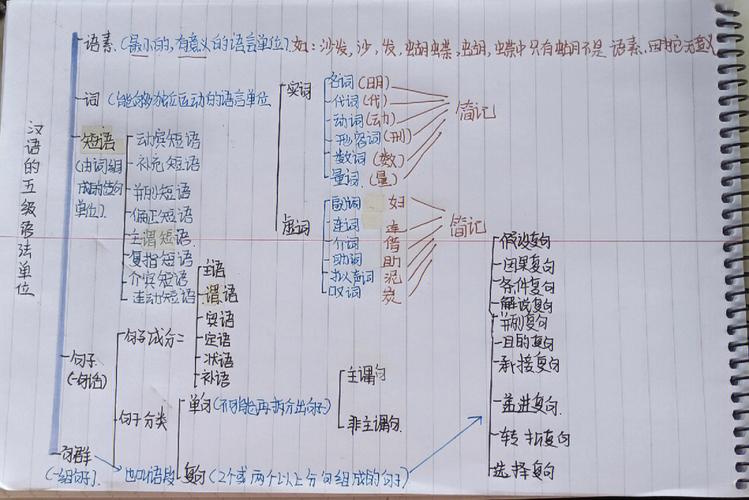 汉语的五级语法单位
语素(最小的,有意义的语言单位).如:沙发,沙,发,蝴蝶,蝴,蝶中只有蝴不是语素,因为它无意义
词(能够独立运动的语言单位
实词
名词(日月)
代词(代)
动词(动力)
形容词(刑)
数词(数)
量词.(量)
简记
虚词
副词 妇
连词 连
介词 借
助词 助
拟声词 泥
叹词 炭
简记
短语
(由词组成的造句单位).
动宾短语
补充短语
并列短语
偏正短语
主谓短语
复指短语
介宾短语
连动短语
句子
(一句话)
句子成分
主语
谓语
宾语
定语
状语
补语
句子分类
单句(不可能再拆分出句子)
主谓句
非主谓句.
复句(2个或两个以上分句组成的句子)
假设复句
因果复句
条件复句
解说复句
并列复句
目的复句
承接复句
递进复句.
转折复句
选择复句
句群
(一组句子).
也叫语段